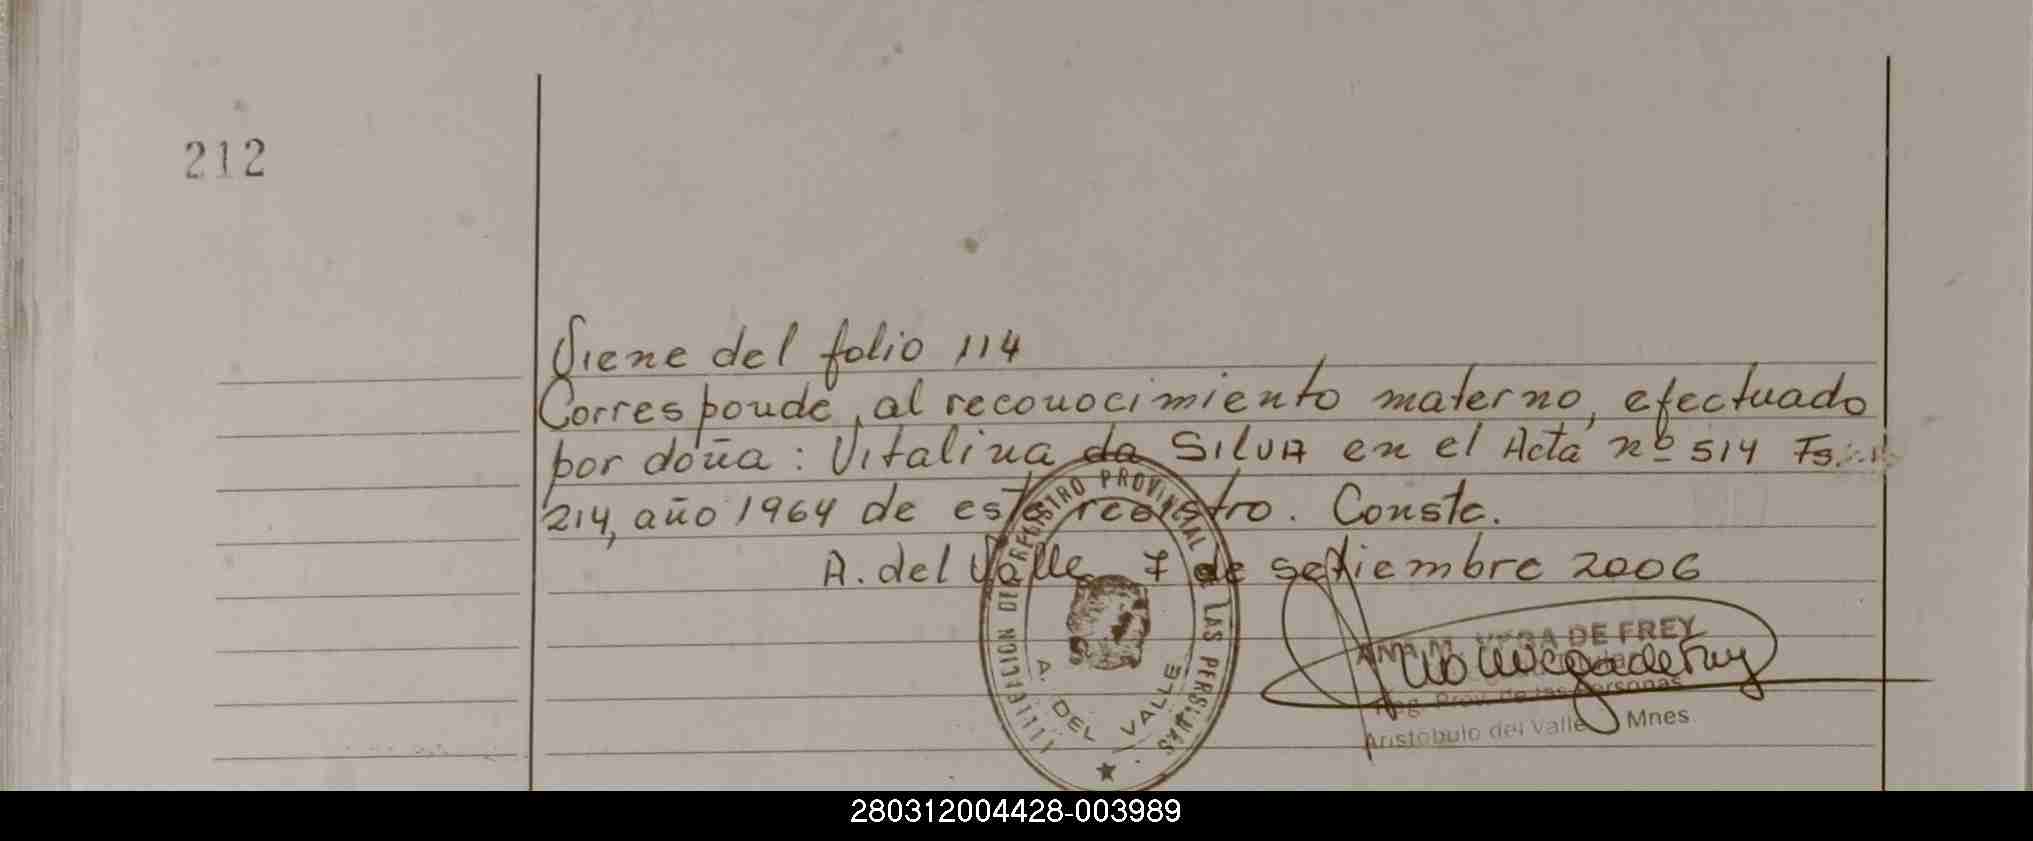 212
Viene del folio 114
Corresponde, al reconocimiento materno, efectuado
por doña: Vitalina da SILVA en el Acta nº 514 Fs.
214, año 1964 de este registro. Conste.
A. del Valle 7 de setiembre 2006
REGISTRO PROVINCIAL DE LAS PERSONAS
A. DEL VALLE
ANA M. VEGA DE FREY
Reg. Prov. de las Personas
Aristobulo del Valle Mnes.
280312004428-003989